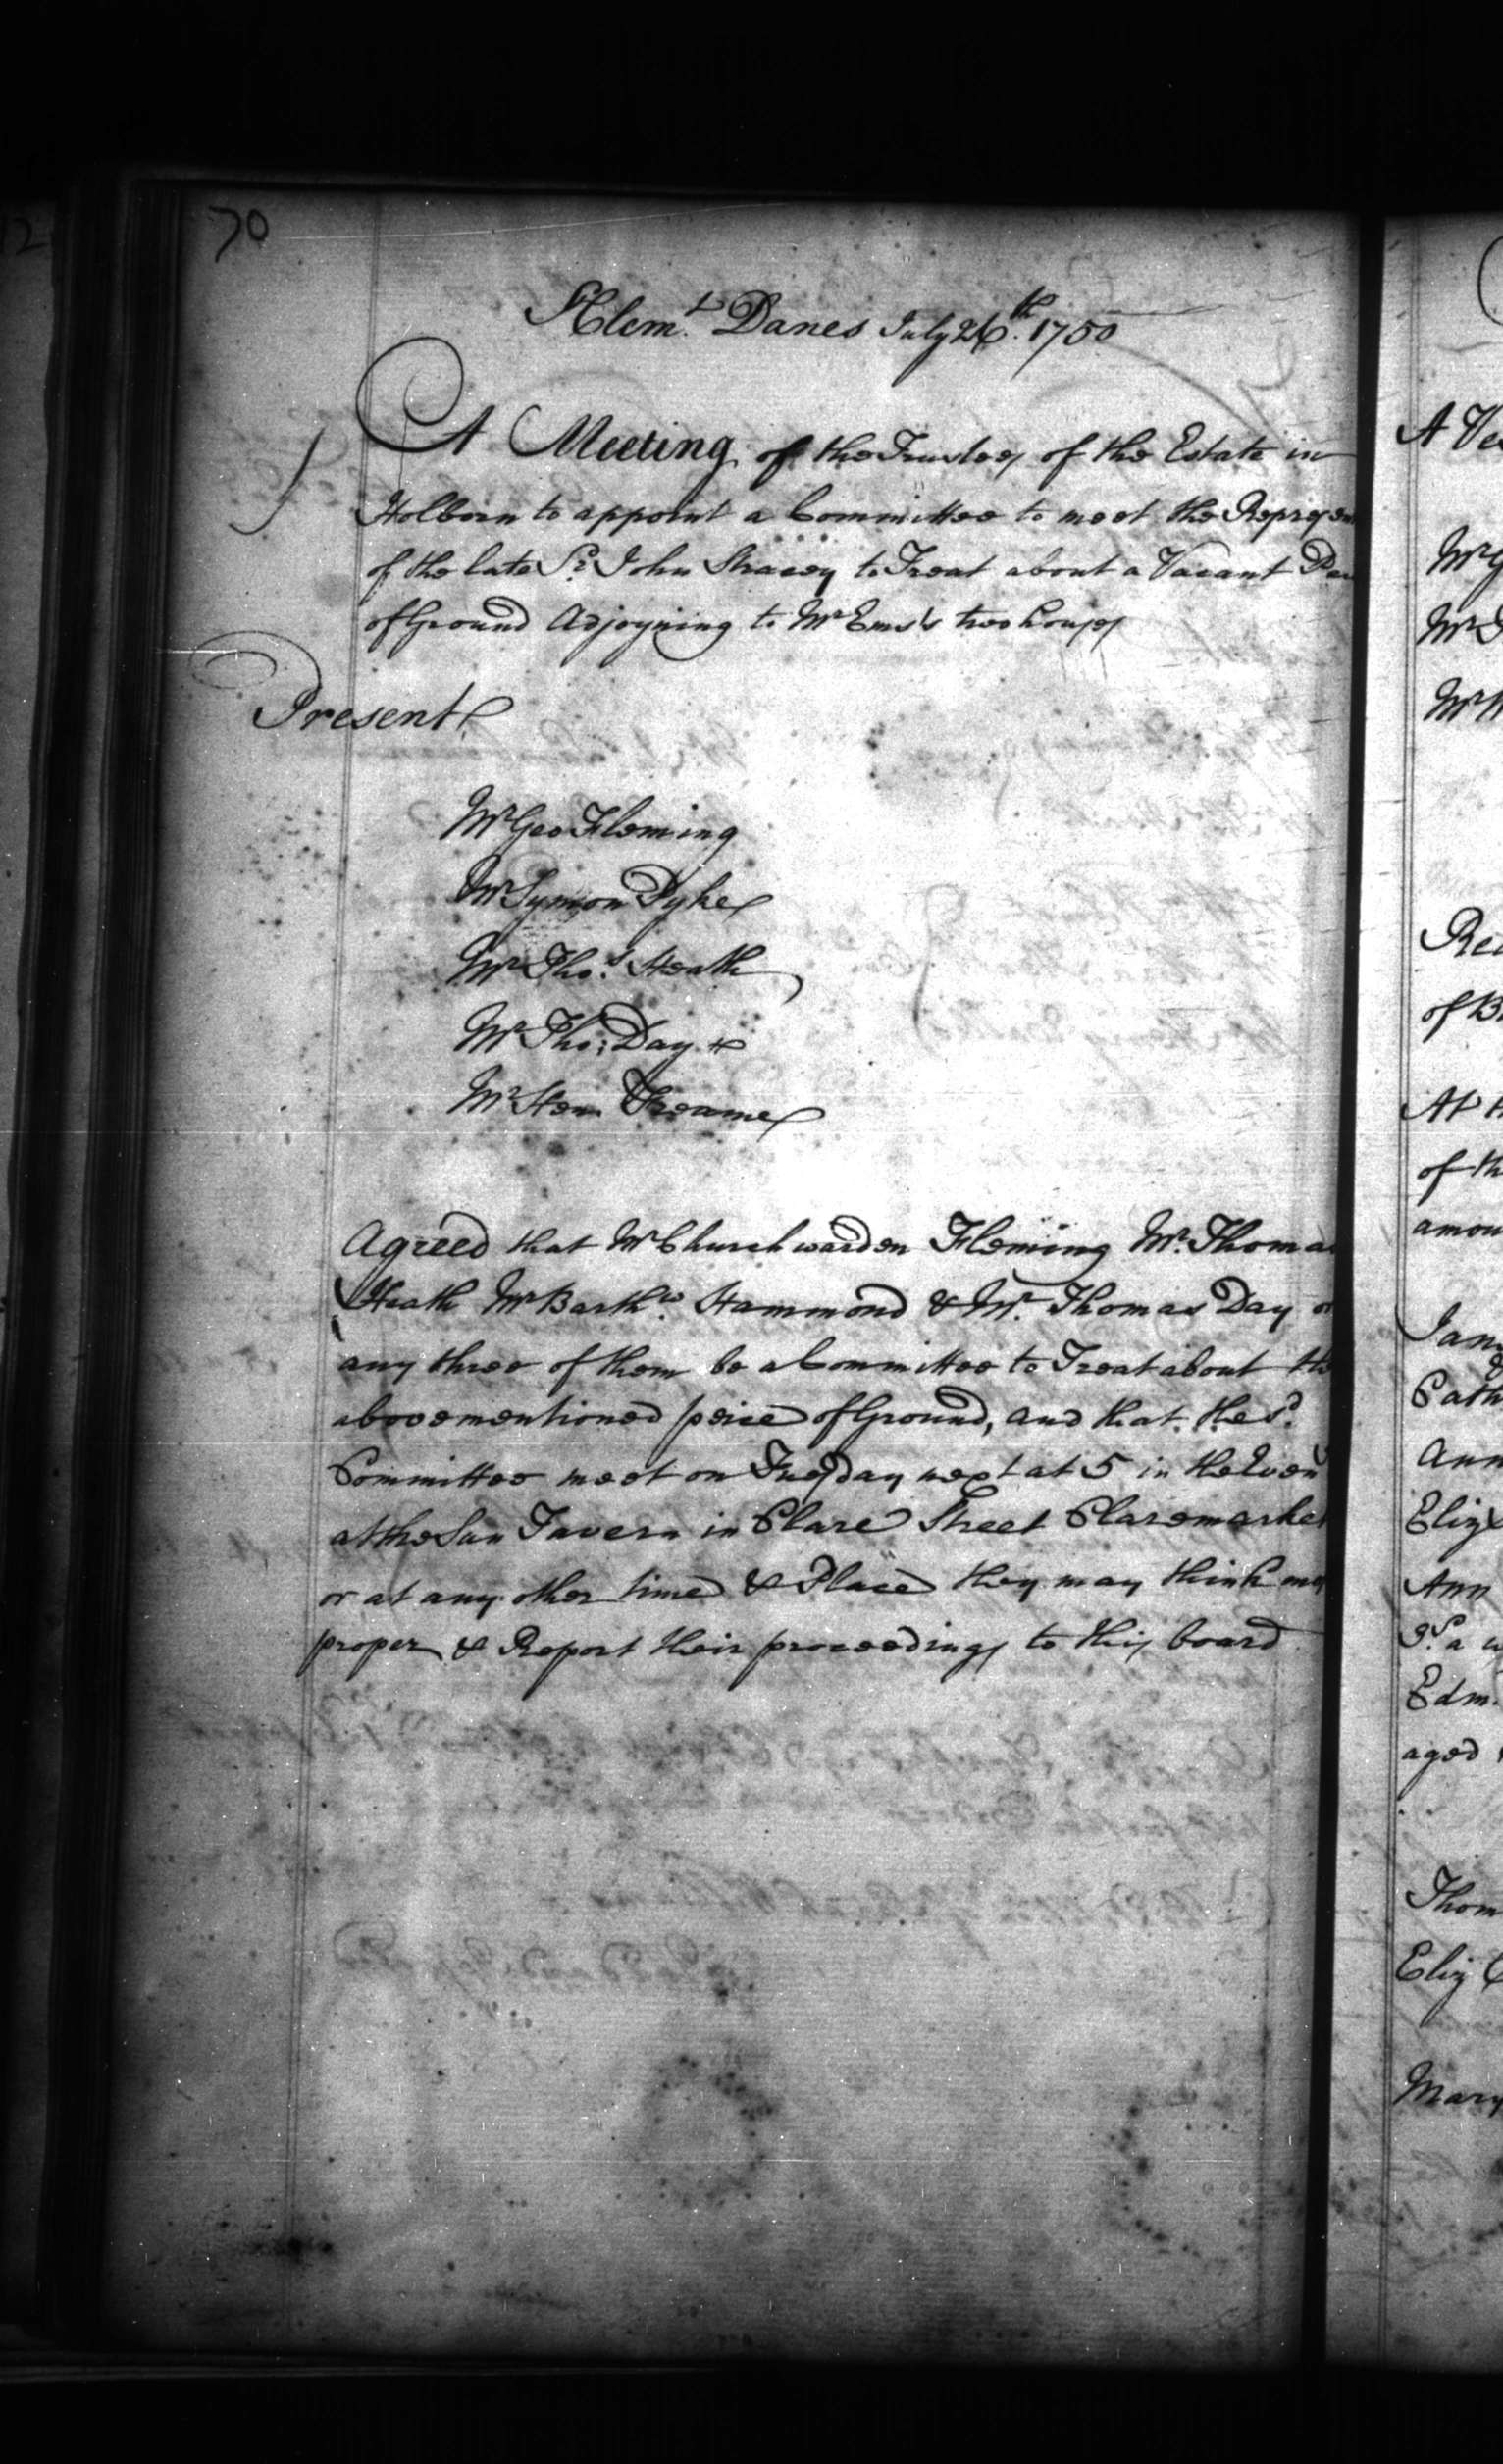 70
St Clemt. Danes July 26th. 1750
A Meeting of the Trustees of the Estate in
Holborn to appoint a Committee to meet the Represen
of the late Sr. John Stracey to Treat about a Vacant
of Ground Adjoyning to Mr two houses
Present
Mr Geo Fleming
Mr Symon Dyke
Mr Thos. Heath
Mr Tho: Day &
Mr Hen. Freame
Agreed that Mr Churchwarden Fleming Mr. Thomas
Heath Mr Barthw. Hammond & Mr. Thomas Day or
any three of them be a Committee to Treat about the
abovementioned peice of Ground, and that the sd.
Committee meet on Tuesday next at 5 in the Even
at the Sun Tavern in Clare Street Claremarket
or at any other time & Place they may think
proper & Report their proceedings to this board
A Ve
Mr
Mr
Mr
Rec
of B
At
of th
amou
Jan
Cath
Ann
Eliz
Ann
Edm.
aged
Thom
Eliz
Mary